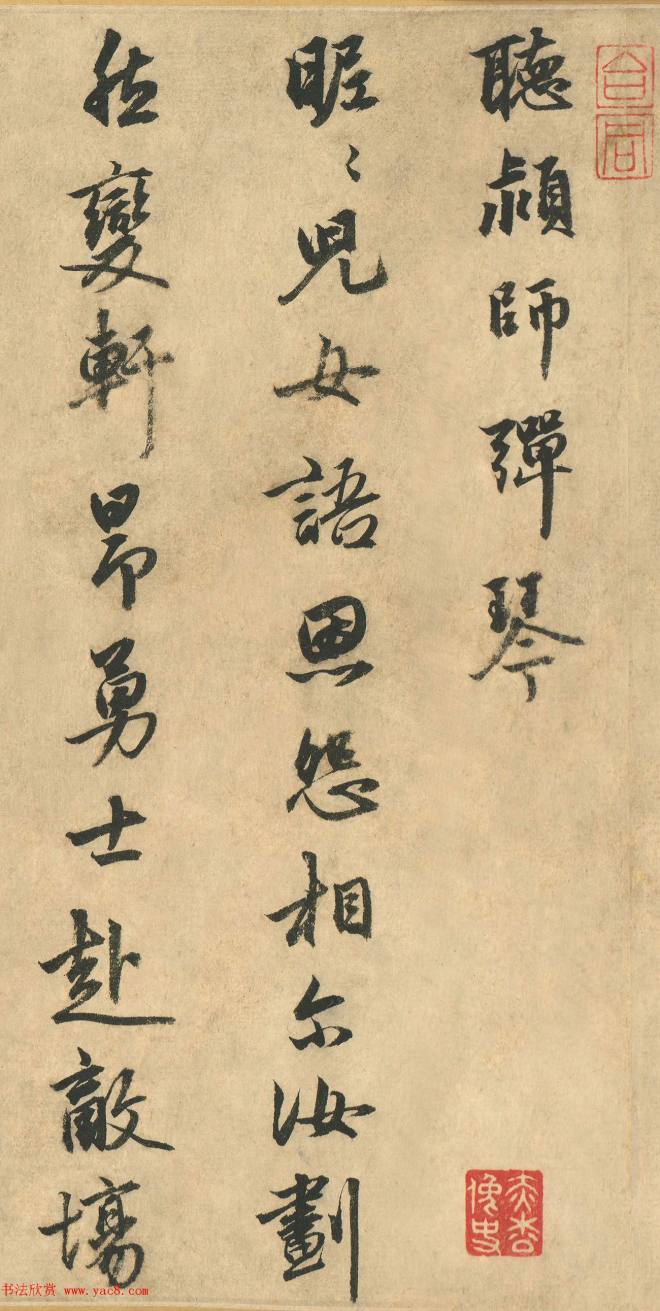 聽穎師彈琴
昵〻兒女語恩怨相尔汝劃
然變軒昂勇士赴敵場
书法欣赏 www.yac8.com